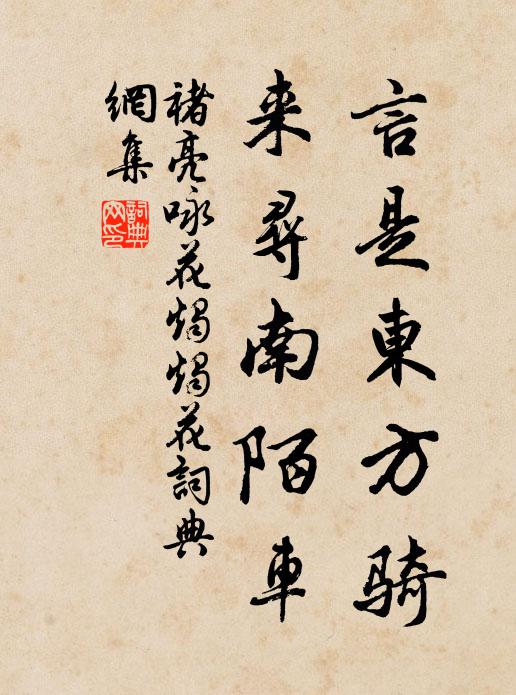 言是東方騎
来尋南陌車
褚亮咏花燭燭花詞典
網集
詞典
网印